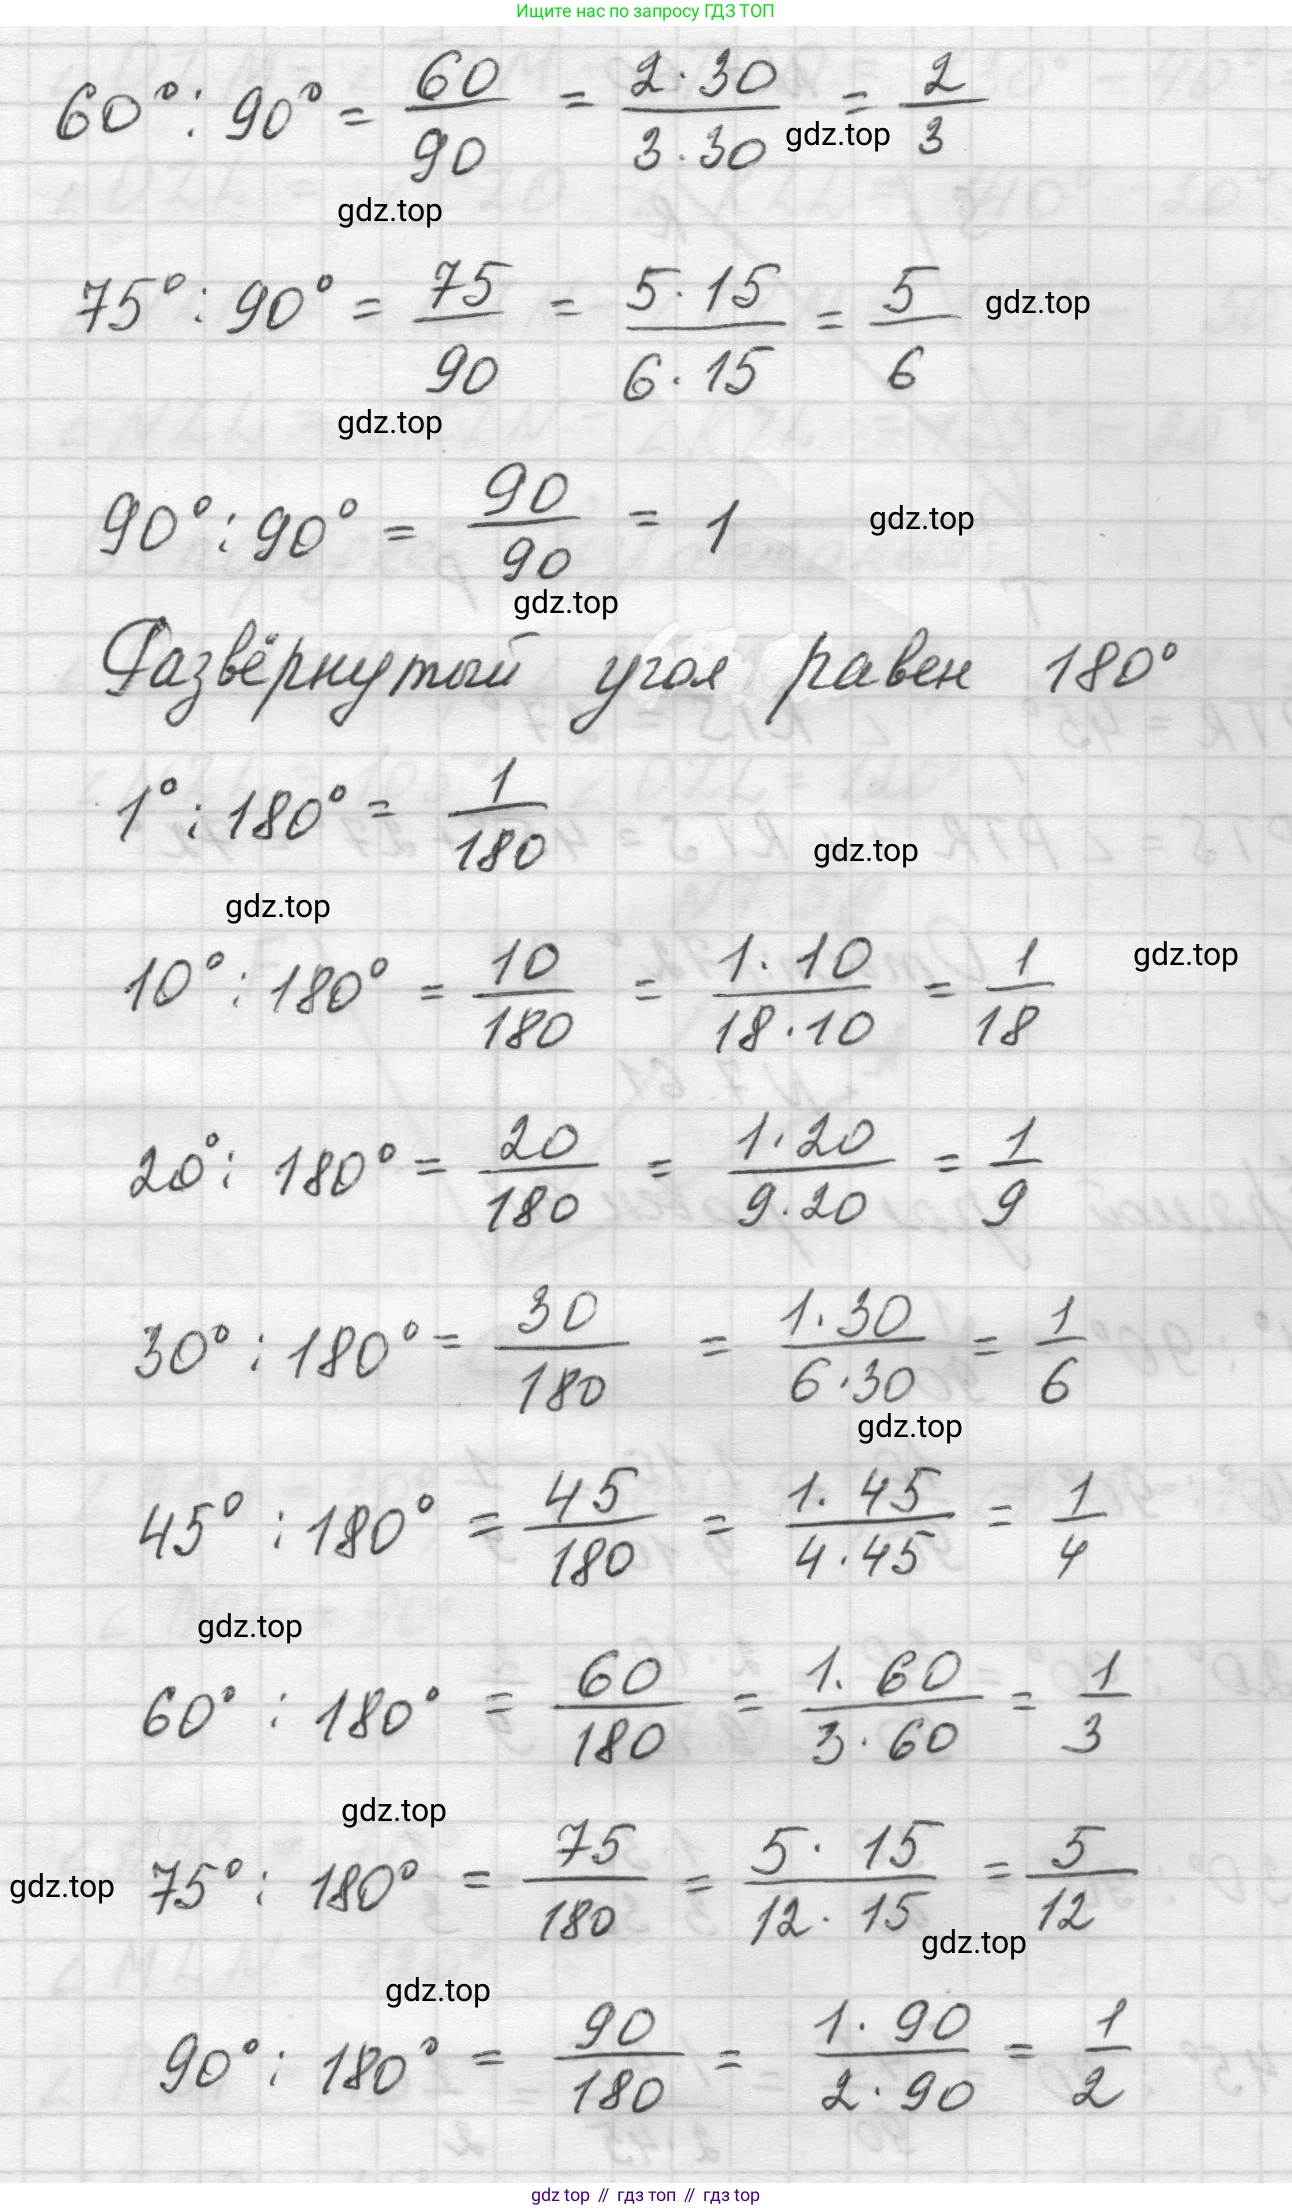 Ищите нас по запросу ГДЗ ТОП
60° : 90° = 60/90 = 2·30/3·30 = 2/3
gdz.top
gdz.top
75° : 90° = 75/90 = 5·15/6·15 = 5/6
gdz.top
gdz.top
90° : 90° = 90/90 = 1
gdz.top
gdz.top
Развёрнутый угол равен 180°
1° : 180° = 1/180
gdz.top
gdz.top
10° : 180° = 10/180 = 1·10/18·10 = 1/18
gdz.top
20° : 180° = 20/180 = 1·20/9·20 = 1/9
30° : 180° = 30/180 = 1·30/6·30 = 1/6
gdz.top
45° : 180° = 45/180 = 1·45/4·45 = 1/4
gdz.top
60° : 180° = 60/180 = 1·60/3·60 = 1/3
gdz.top
gdz.top
75° : 180° = 75/180 = 5·15/12·15 = 5/12
gdz.top
gdz.top
90° : 180° = 90/180 = 1·90/2·90 = 1/2
gdz top // гдз топ // gdz top